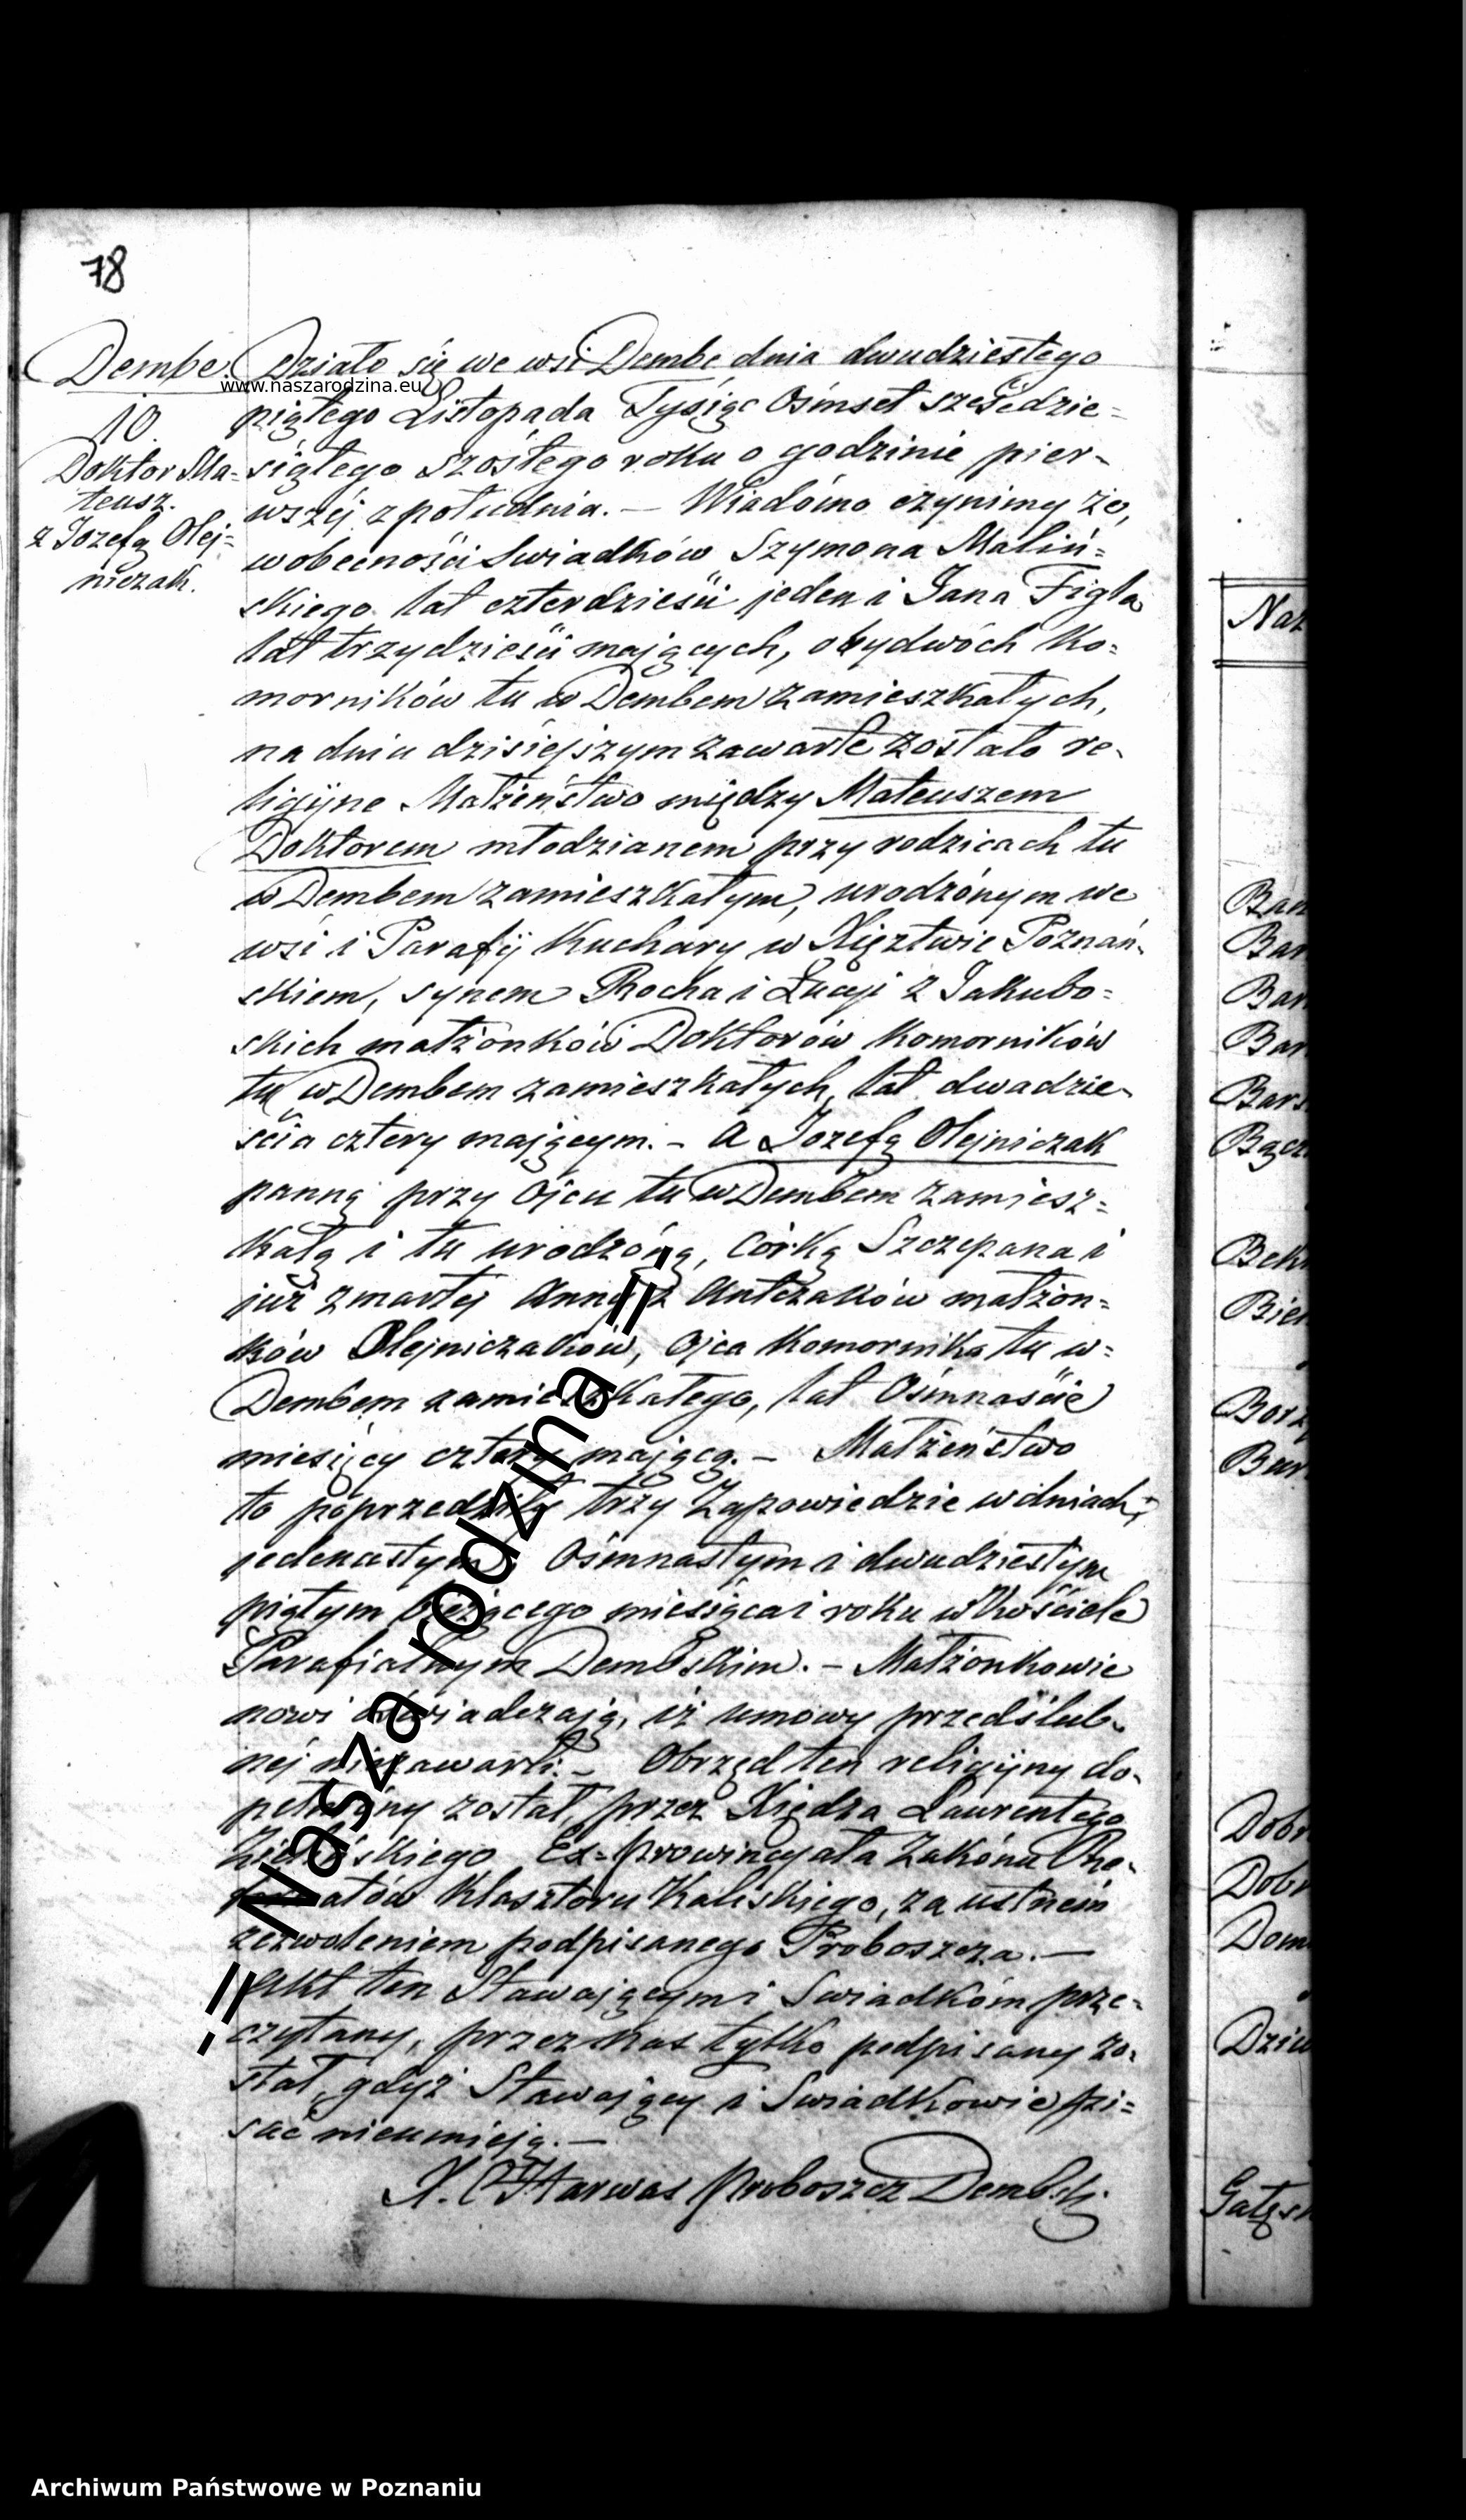 78
Dembe.
10.
Doktor Ma-
teusz.
z Jozefą Olej-
niczak.
Działo się we wsi Dembe dnia dwudziestego
www.naszarodzina.eu
piątego Listopada Tysiąc Osimset sześćdzie=
siątego Szóstego roku o godzinie pier-
wszéj z południa. — Wiadómo czynimy że,
w obecności Swiadków Szymona Maliń=
skiego lat czterdzieści jeden i Jana Figla
lat trzydzieści mających, obydwóch Ko=
morników tu w Dembem zamieszkałych,
na dniu dzisiejszym zawarte zostało re-
ligijne Małżeństwo między Mateuszem
Doktorem młodzianem przy rodzicach tu
w Dembem zamieszkałym, urodzónym we
wsi i Parafij Kuchary w Xięztwie Poznań-
skiem, synem Rocha i Łucyi z Jakubo=
skich małżonków Doktorów Komorników
tu w Dembem zamieszkałych, lat dwadzie-
ścia cztery mającym. - A Jozefą Olejniczak
panną przy Ojcu tu w Dembem zamiesz=
kałą i tu urodzóną, Córką Szczepana i
już zmarłej Anny z Antczaków małżon=
ków Olejniczaków, Ojca Komornika tu w=
Dembem zamieszkałego, lat Ośmnaście
miesięcy cztery mającą. - Małżeństwo
to poprzedziły trzy Zapowiedzie w dniach;
jedenastym, Ośmnastym i dwudziestym
piątym bieżącego miesiąca i roku w Kościele
Parafialnym Dembskim. - Małżonkowie
nowi oświadczają, iż umowy przedślub-
néj niezawarli. - Obrzęd ten religijny do-
pełniony został, przez Xiędza Laurentego
Ex-prowincyała Zakónu Re-
formatów Klasztoru Kaliskiego, za ustném
zezwoleniem podpisanego Proboszcza. —
Akt ten Stawającym i Swiadkóm prze-
czytany, przez nas tylko podpisany zo-
stał, gdyż Stawający i Swiadkowie pi=
sać nieumieją. —
X. Harwas Proboszcz Dembski
-= Nasza rodzina =-
Naz
Ban
Bar
Bar
Bar
Bars
Bącz
Bek
Bie
Borz
Bur
Dobr
Dobr
Dom
Dziu
Gałęs
Archiwum Państwowe w Poznaniu